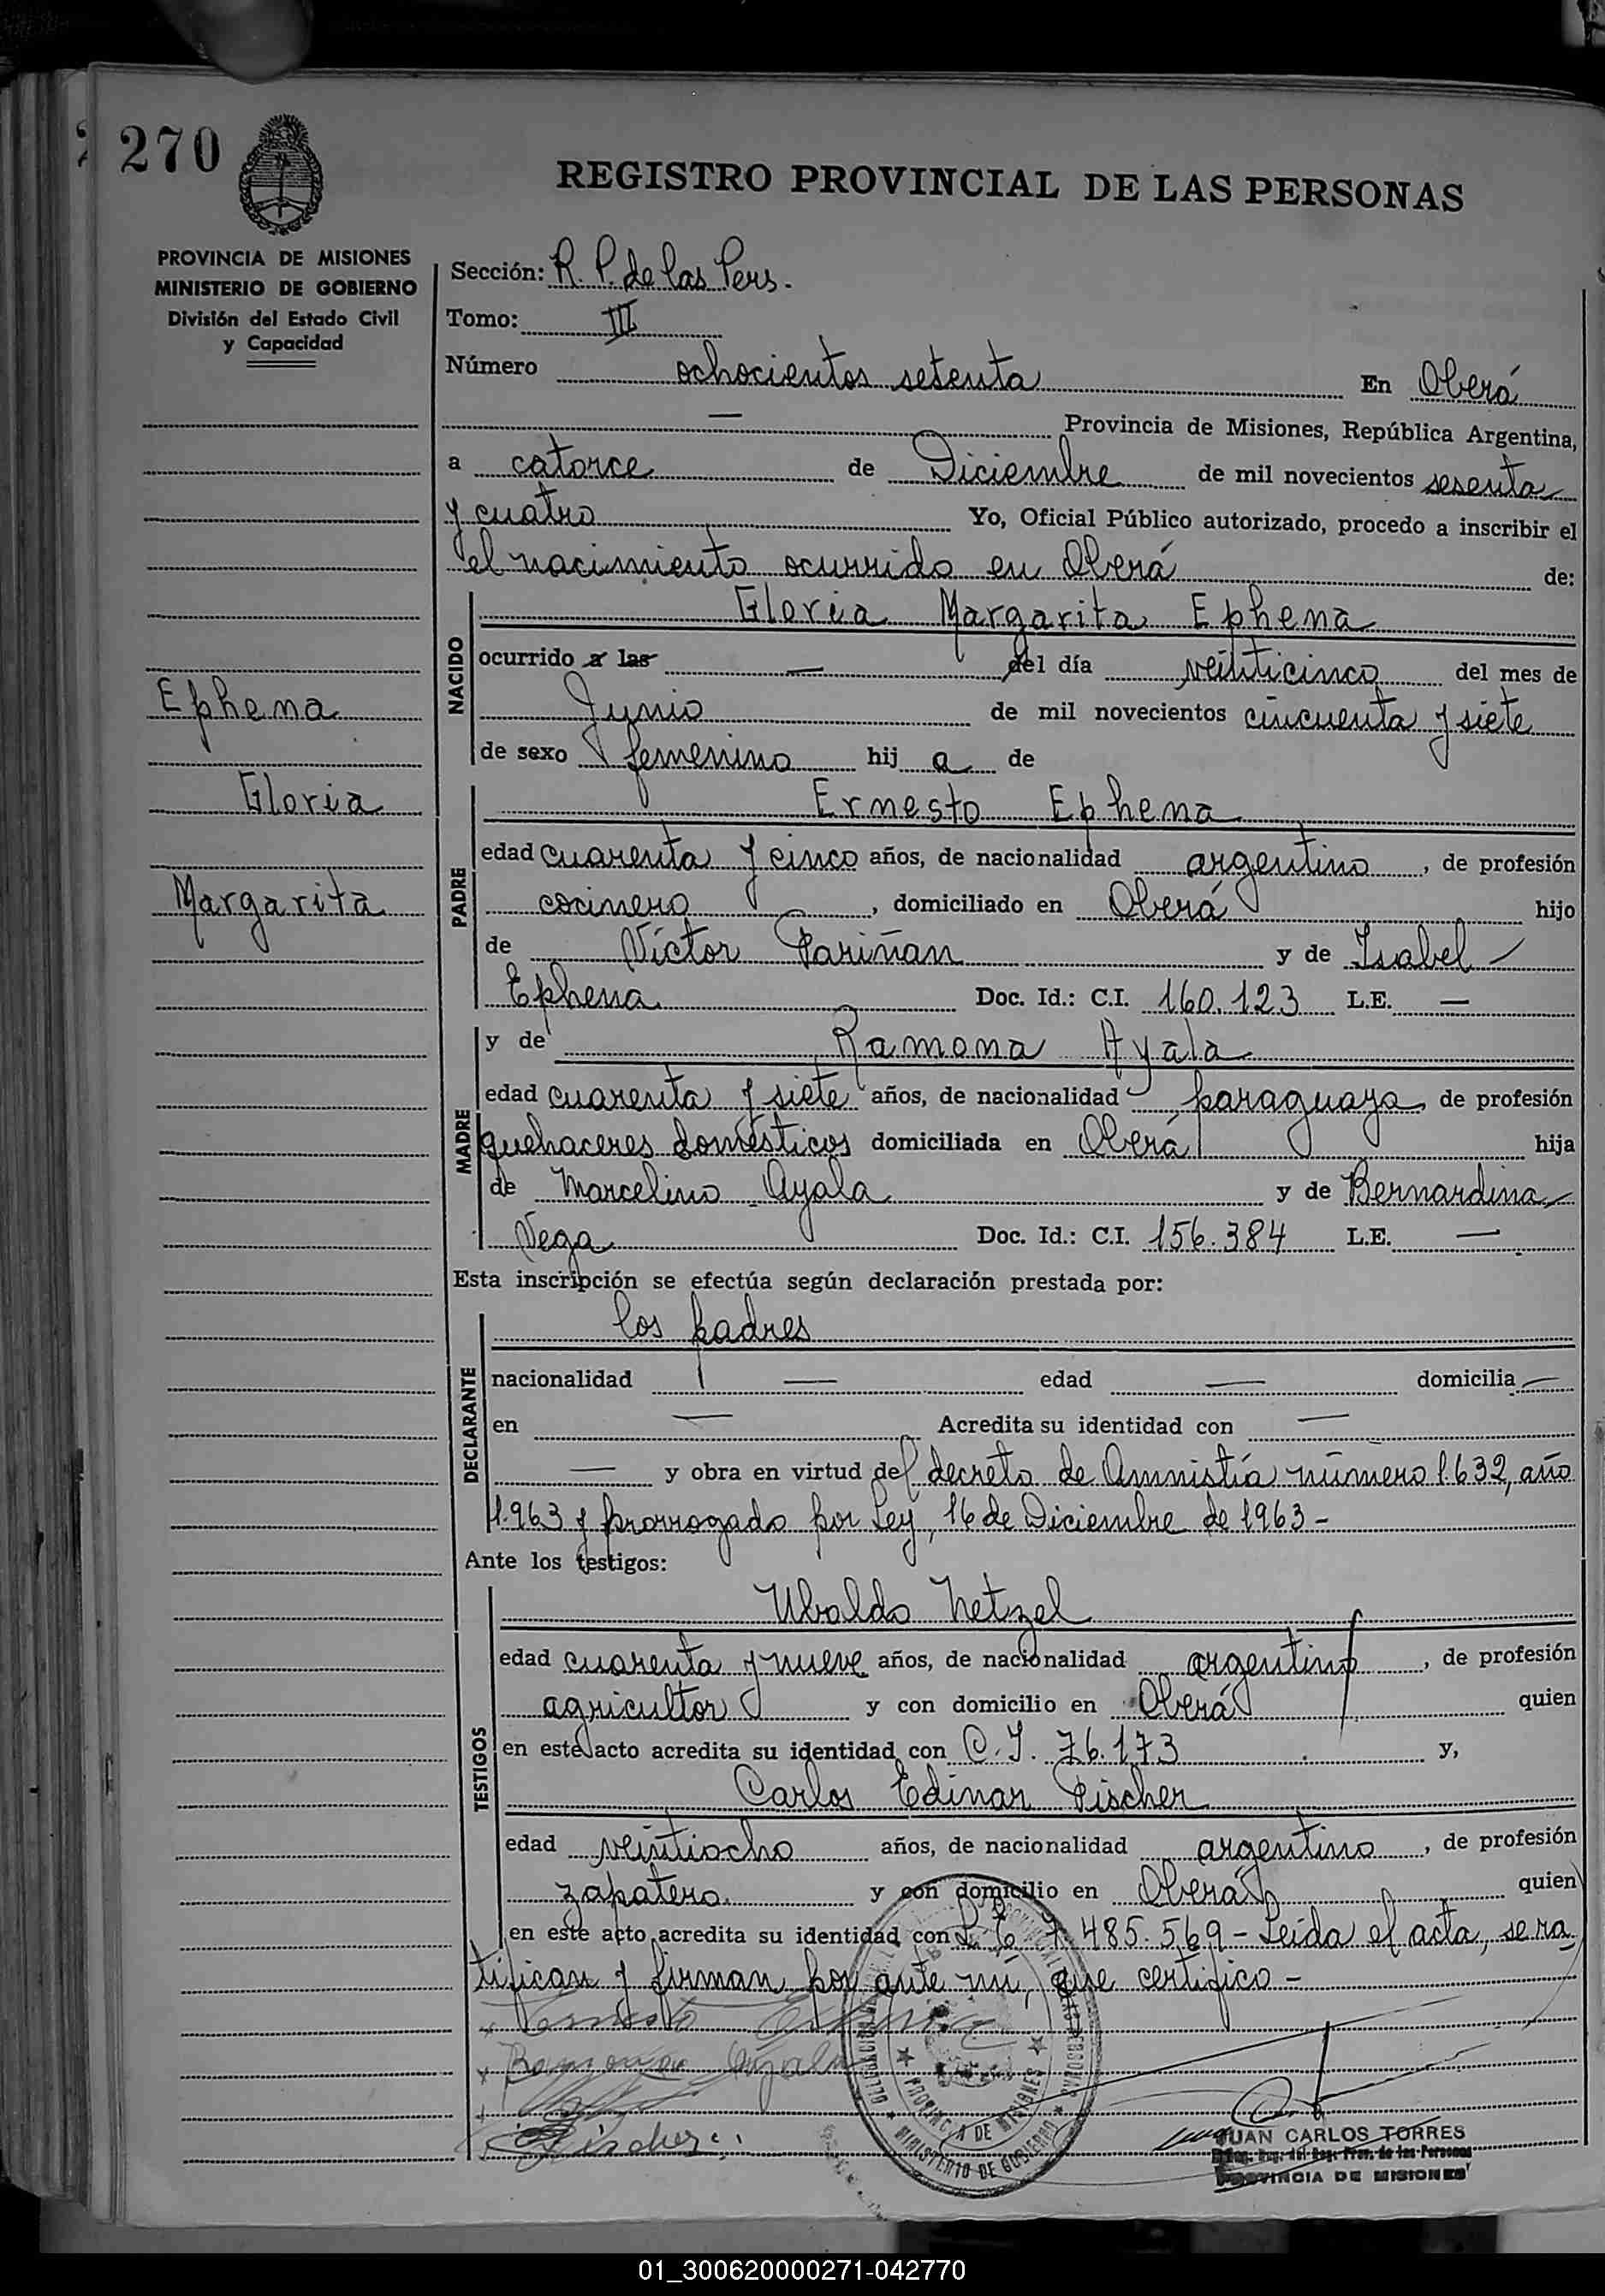 270
REGISTRO PROVINCIAL DE LAS PERSONAS
PROVINCIA DE MISIONES
MINISTERIO DE GOBIERNO
División del Estado Civil
y Capacidad
Sección: R. P. de las Pers.
Tomo: III
Número ochocientos setenta En Oberá
— Provincia de Misiones, República Argentina,
a catorce de Diciembre de mil novecientos sesenta
y cuatro Yo, Oficial Público autorizado, procedo a inscribir el
el nacimiento ocurrido en Oberá de:
NACIDO
Gloria Margarita Ephena
ocurrido a las — del día veinticinco del mes de
Junio de mil novecientos cincuenta y siete
de sexo femenino hij a de
Ephena
Gloria
Margarita
PADRE
Ernesto Ephena
edad cuarenta y cinco años, de nacionalidad argentino, de profesión
cocinero, domiciliado en Oberá hijo
de Víctor Fariñan y de Isabel —
Ephena Doc. Id.: C.I. 160.123 L.E. —
MADRE
y de Ramona Ayala
edad cuarenta y siete años, de nacionalidad paraguaya, de profesión
quehaceres domésticos domiciliada en Oberá hija
de Marcelino Ayala y de Bernardina
Vega Doc. Id.: C.I. 156.384 L.E. —
Esta inscripción se efectúa según declaración prestada por:
DECLARANTE
los padres
nacionalidad — edad — domicilia —
en — Acredita su identidad con —
— y obra en virtud del decreto de Amnistía número 1.632, año
1.963 y prorrogado por Ley, 16 de Diciembre de 1963 -
Ante los testigos:
TESTIGOS
Ubaldo Netzel
edad cuarenta y nueve años, de nacionalidad argentino, de profesión
agricultor y con domicilio en Oberá quien
en este acto acredita su identidad con C.I. 76.173 y,
Carlos Edinar Fischer
edad veintiocho años, de nacionalidad argentino, de profesión
zapatero y con domicilio en Oberá quien
en este acto acredita su identidad con L.E. 7.485.569 - Leída el acta, se ra
tifican y firman por ante mí, que certifico -
Ernesto Ephena
Ramona Ayala
Fischer
PROVINCIA DE MISIONES
MINISTERIO DE GOBIERNO
JUAN CARLOS TORRES
Reg. Prov. de las Personas
PROVINCIA DE MISIONES
01_300620000271-042770